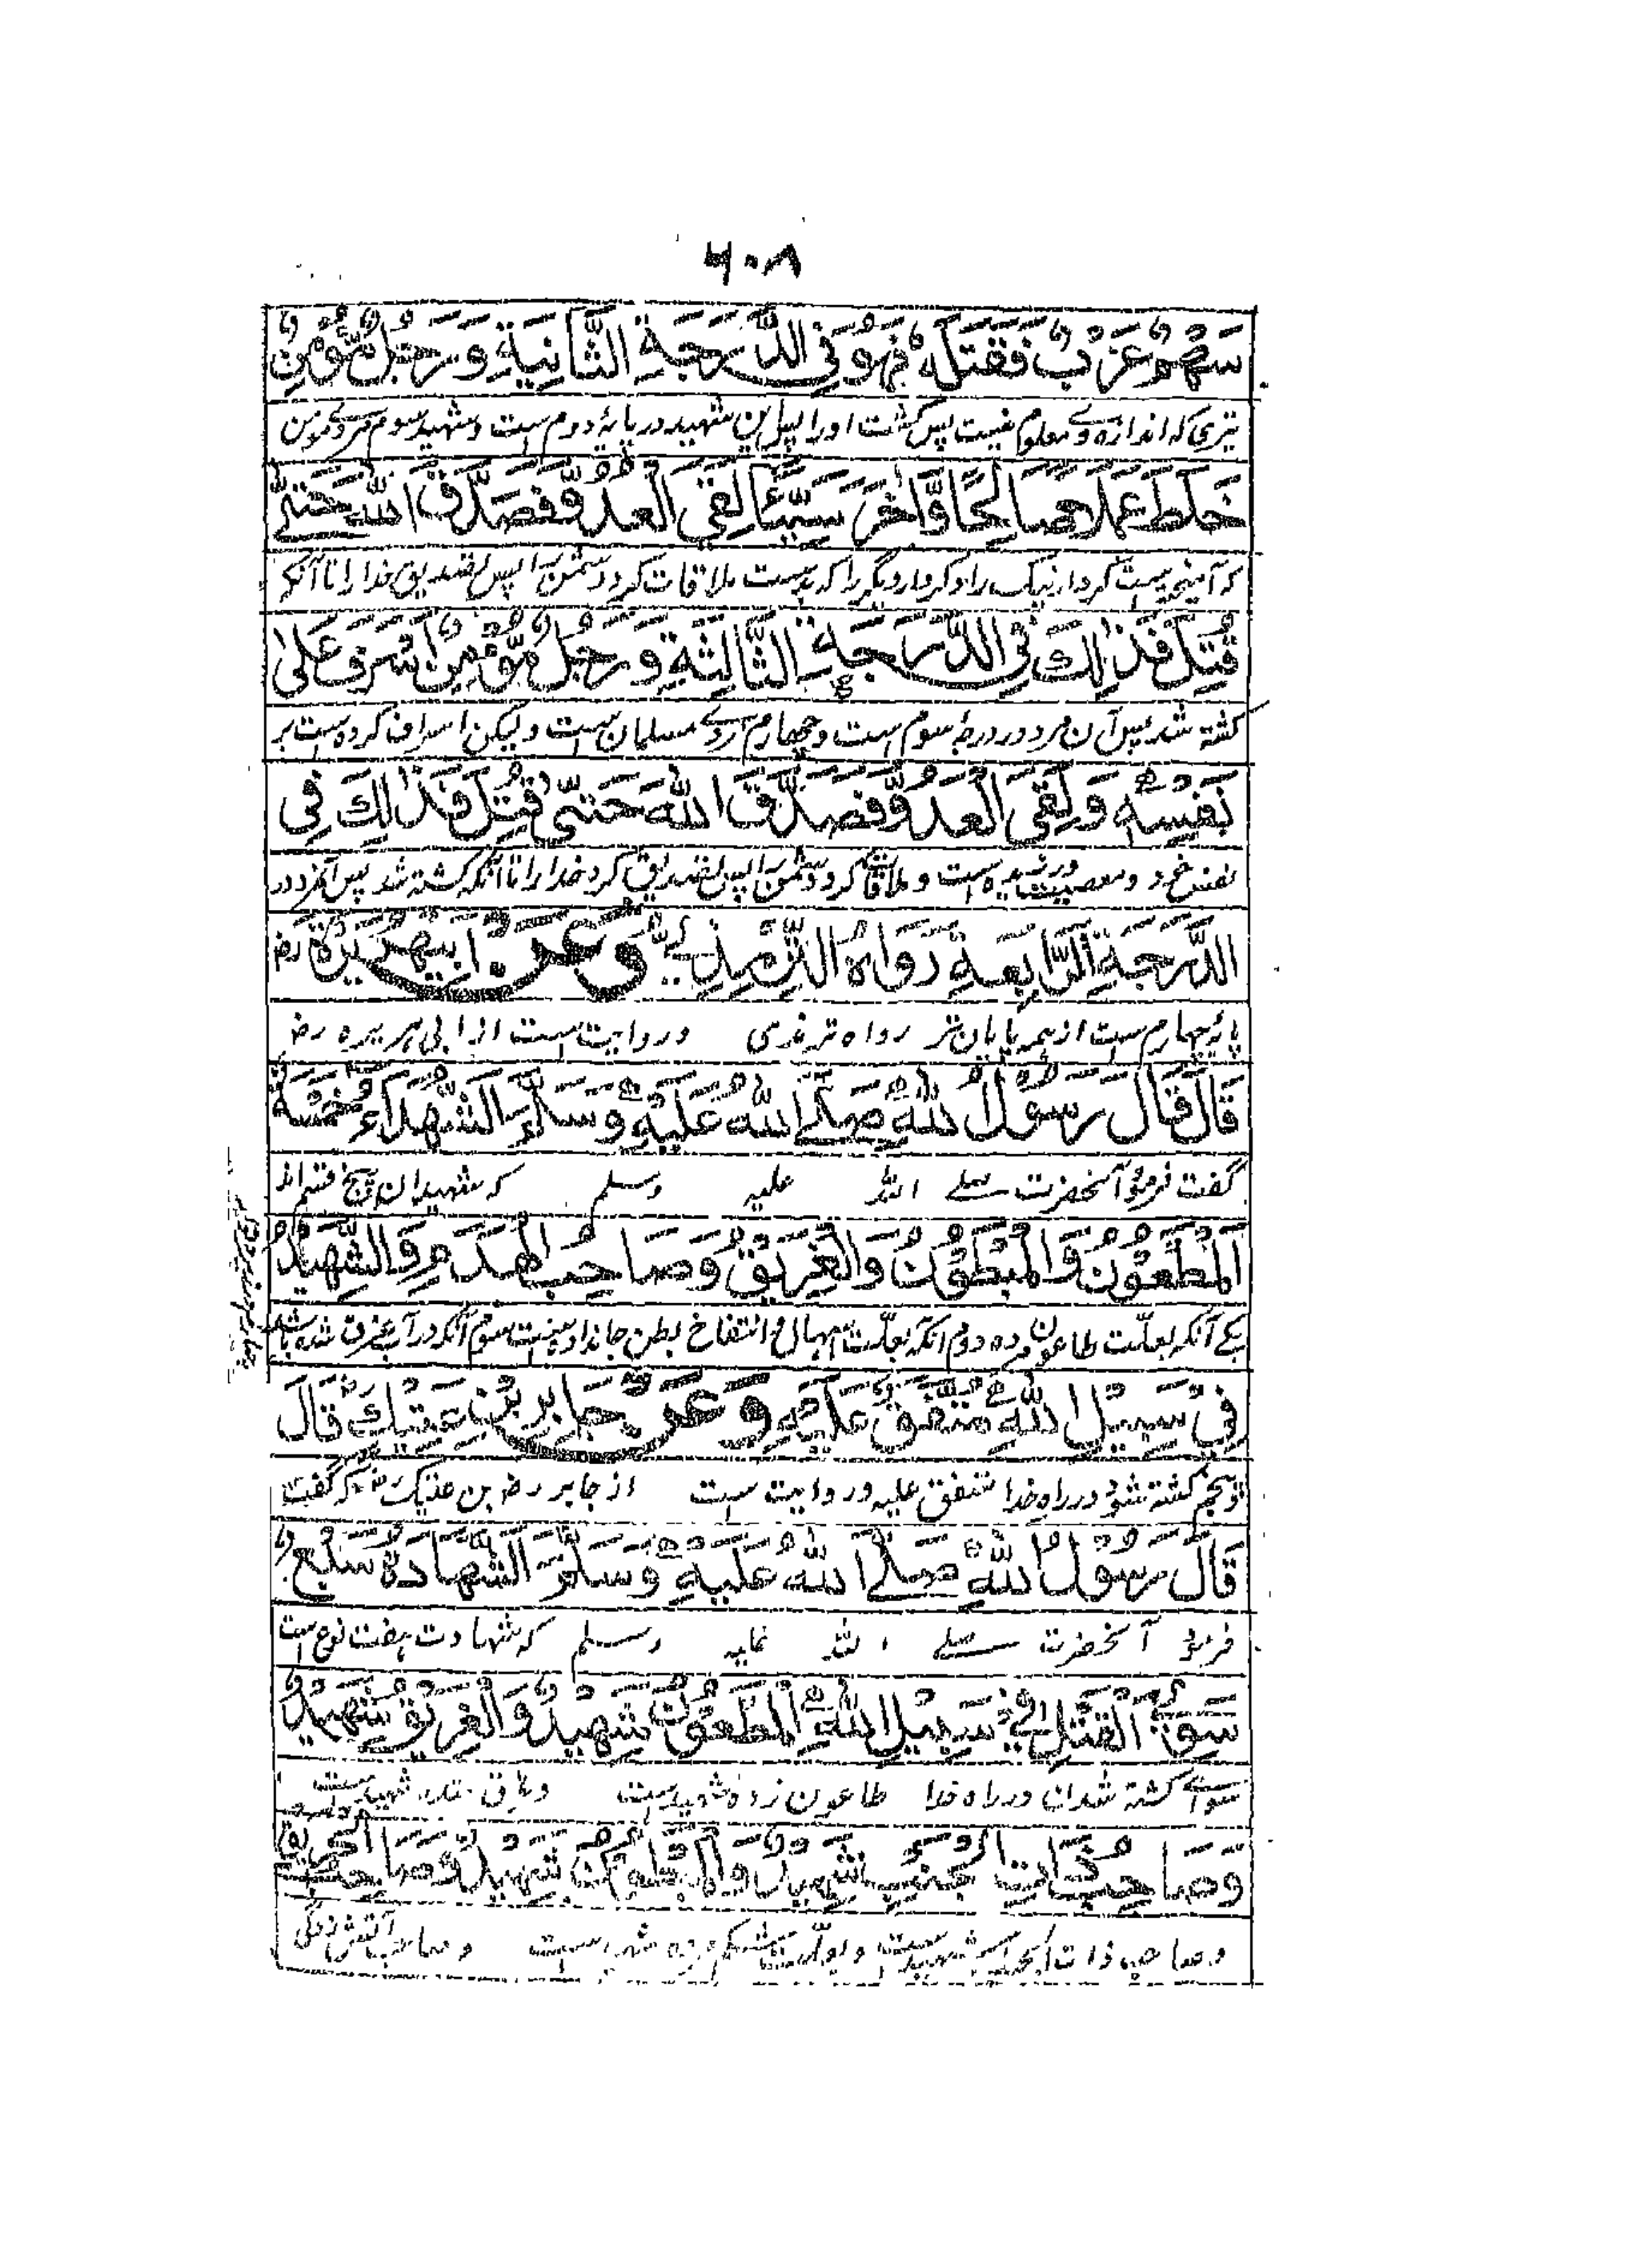 ۶۰۸
سَهْمٌ غَرْبٌ فَقَتَلَهُ فَهُوَ فِي الدَّرَجَةِ الثَّانِيَةِ وَرَجُلٌ مُّؤْمِنٌ
تیری که اندازه وے معلوم نیست پس کشت اورا پس این شهید در پایۂ دوم ست و شهید سوم مردے مومن
خَلَطَ عَمَلًا صَالِحًا وَّاٰخَرَ سَيِّئًا لَقِيَ الْعَدُوَّ فَصَدَّقَ اللّٰهَ حَتّٰى
که آمیخته است کردار نیک را و کردار دیگر را که بدست ملاقات کرد دشمن را پس تصدیق خدا را تا آنکه
قُتِلَ فَذٰلِكَ فِي الدَّرَجَةِ الثَّالِثَةِ وَرَجُلٌ مُّؤْمِنٌ اَسْرَفَ عَلٰى
کشته شد پس آن مرد در درجۂ سوم ست و چهارم مردے مسلمان ست ولیکن اسراف کرده ست بر
نَفْسِهٖ وَلَقِيَ الْعَدُوَّ فَصَدَّقَ اللّٰهَ حَتّٰى قُتِلَ فَذٰلِكَ فِي
نفس خود و معصیت ورزیده ست و ملاقات کرد دشمن را پس تصدیق کرد خدا را تا آنکه کشته شد پس آنمرد در
الدَّرَجَةِ الرَّابِعَةِ رَوَاهُ التِّرْمِذِيُّ وَعَنْ اَبِيْ هُرَيْرَةَ رض
پایۂ چهارم ست از همه پایان تر رواه ترمذی و روایت ست از ابی هریره رض
قَالَ قَالَ رَسُوْلُ اللّٰهِ صَلَّى اللّٰهُ عَلَيْهِ وَسَلَّمَ الشُّهَدَاءُ خَمْسَةٌ
گفت فرمود آنحضرت صلے الله علیه وسلم که شهیدان پنج قسم اند
اَلْمَطْعُوْنُ وَالْمَبْطُوْنُ وَالْغَرِيْقُ وَصَاحِبُ الْهَدْمِ وَالشَّهِيْدُ
یکے آنکه بعلت طاعون مرده دوم آنکه بعلت اسهال و انتفاخ بطن جان داده ست سوم آنکه در آب غرق شده باشد
فِيْ سَبِيْلِ اللّٰهِ مُتَّفَقٌ عَلَيْهِ وَعَنْ جَابِرِ بْنِ عَتِيْكٍ قَالَ
پنجم کشته شود در راه خدا متفق علیه و روایت ست از جابر رض بن عتیک که گفت
قَالَ رَسُوْلُ اللّٰهِ صَلَّى اللّٰهُ عَلَيْهِ وَسَلَّمَ الشَّهَادَةُ سَبْعٌ
فرمود آنحضرت صلے الله علیه وسلم که شهادت هفت نوع است
سِوَى الْقَتْلِ فِيْ سَبِيْلِ اللّٰهِ الْمَطْعُوْنُ شَهِيْدٌ وَالْغَرِيْقُ شَهِيْدٌ
سوائے کشته شدن در راه خدا طاعون زده شهید ست و غرق شده شهید ست
وَصَاحِبُ ذَاتِ الْجَنْبِ شَهِيْدٌ وَالْمَبْطُوْنُ شَهِيْدٌ وَصَاحِبُ الْحَرِيْقِ
و صاحب ذات الجنب شهید ست و بعلت شکم مرده شهید ست و صاحب آتش زدگی